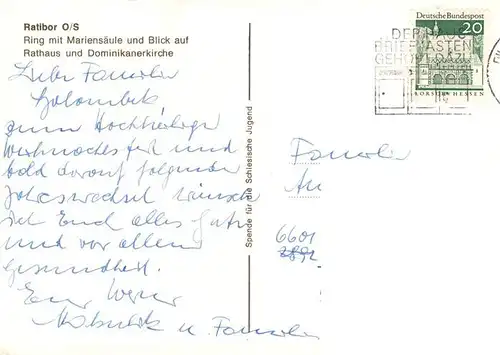 Ratibor O/S
Ring mit Mariensäule und Blick auf
Rathaus und Dominikanerkirche
Deutsche Bundespost
20
LORSCH/HESSEN
DER HAUS
BRIEFKASTEN
GEHÖRT DAZU
Liebe Familie
zum Hochheiligen
Weihnachtsfest und
bald darauf folgenden
Jahreswechsel wünsche
ich Euch alles Gute
und vor allem
Gesundheit.
Euer Werner
u. Familie
Spende für die Schlesische Jugend
Familie
An
6601